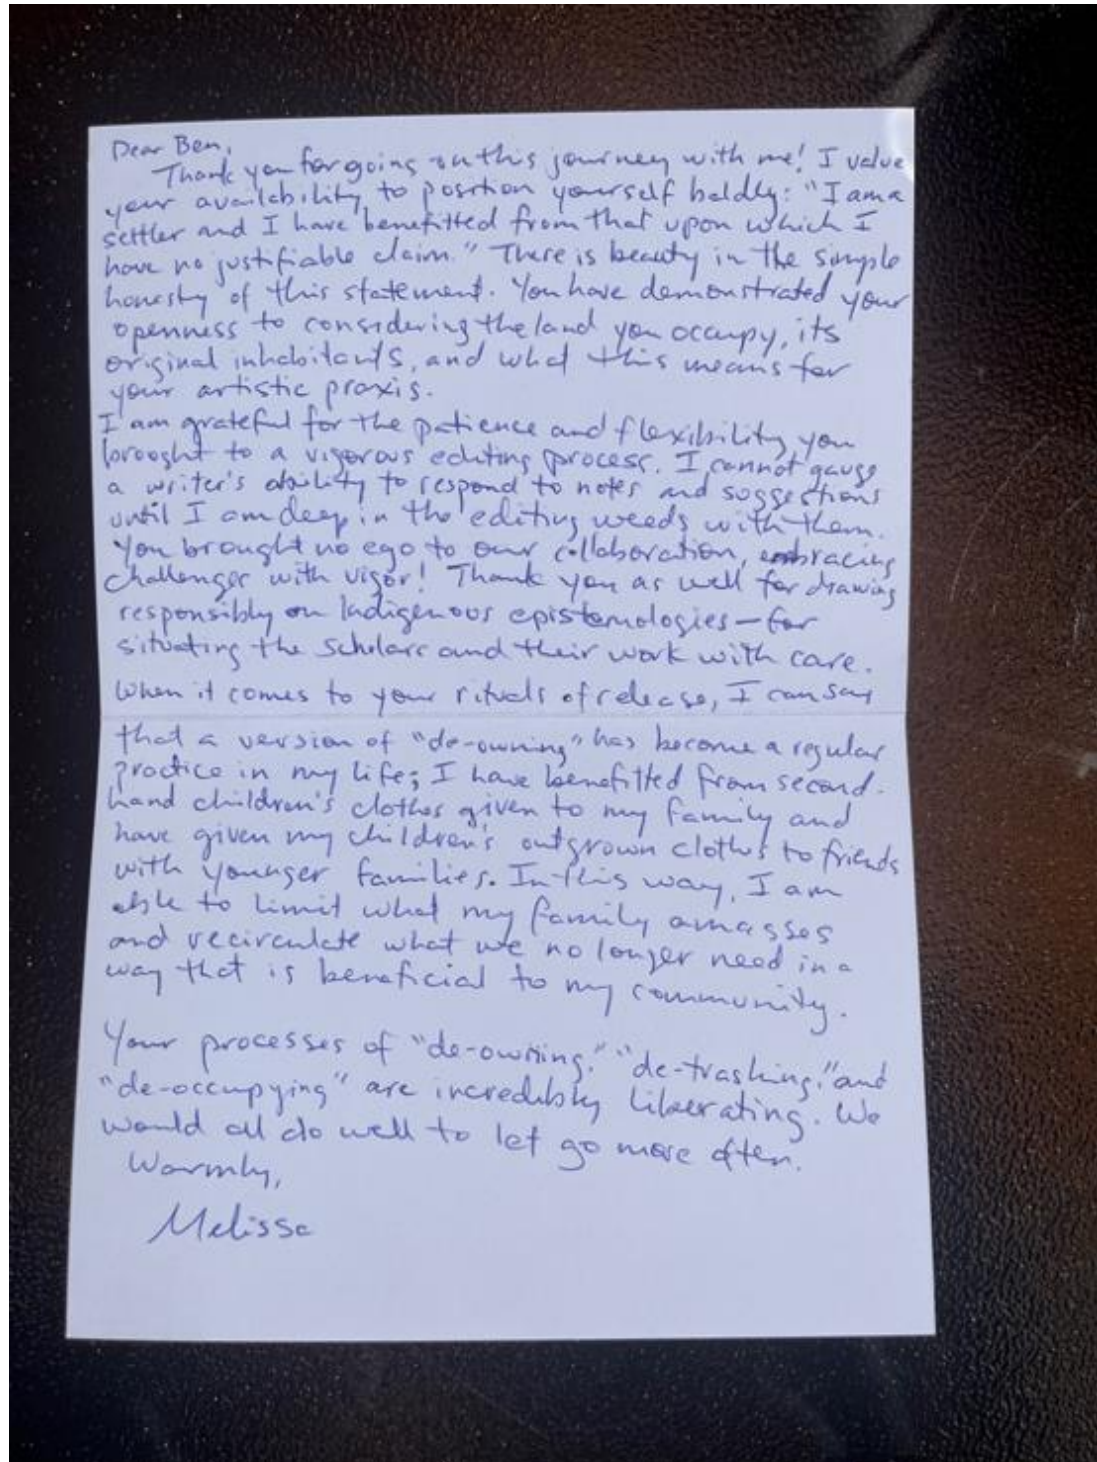 Dear Ben,
Thank you for going on this journey with me! I value
your availability to position yourself boldly: "I am a
settler and I have benefitted from that upon which I
have no justifiable claim." There is beauty in the simple
honesty of this statement. You have demonstrated your
openness to considering the land you occupy, its
original inhabitants, and what this means for
your artistic praxis.
I am grateful for the patience and flexibility you
brought to a vigorous editing process. I cannot gauge
a writer's ability to respond to notes and suggestions
until I am deep in the editing weeds with them.
You brought no ego to our collaboration, embracing
challenges with vigor! Thank you as well for drawing
responsibly on Indigenous epistemologies—for
situating the scholars and their work with care.
When it comes to your rituals of release, I can say
that a version of "de-owning" has become a regular
practice in my life; I have benefitted from second-
hand children's clothes given to my family and
have given my children's outgrown clothes to friends
with younger families. In this way, I am
able to limit what my family amasses
and recirculate what we no longer need in a
way that is beneficial to my community.
Your processes of "de-owning," "de-trashing," and
"de-occupying" are incredibly liberating. We
would all do well to let go more often.
Warmly,
Melissa